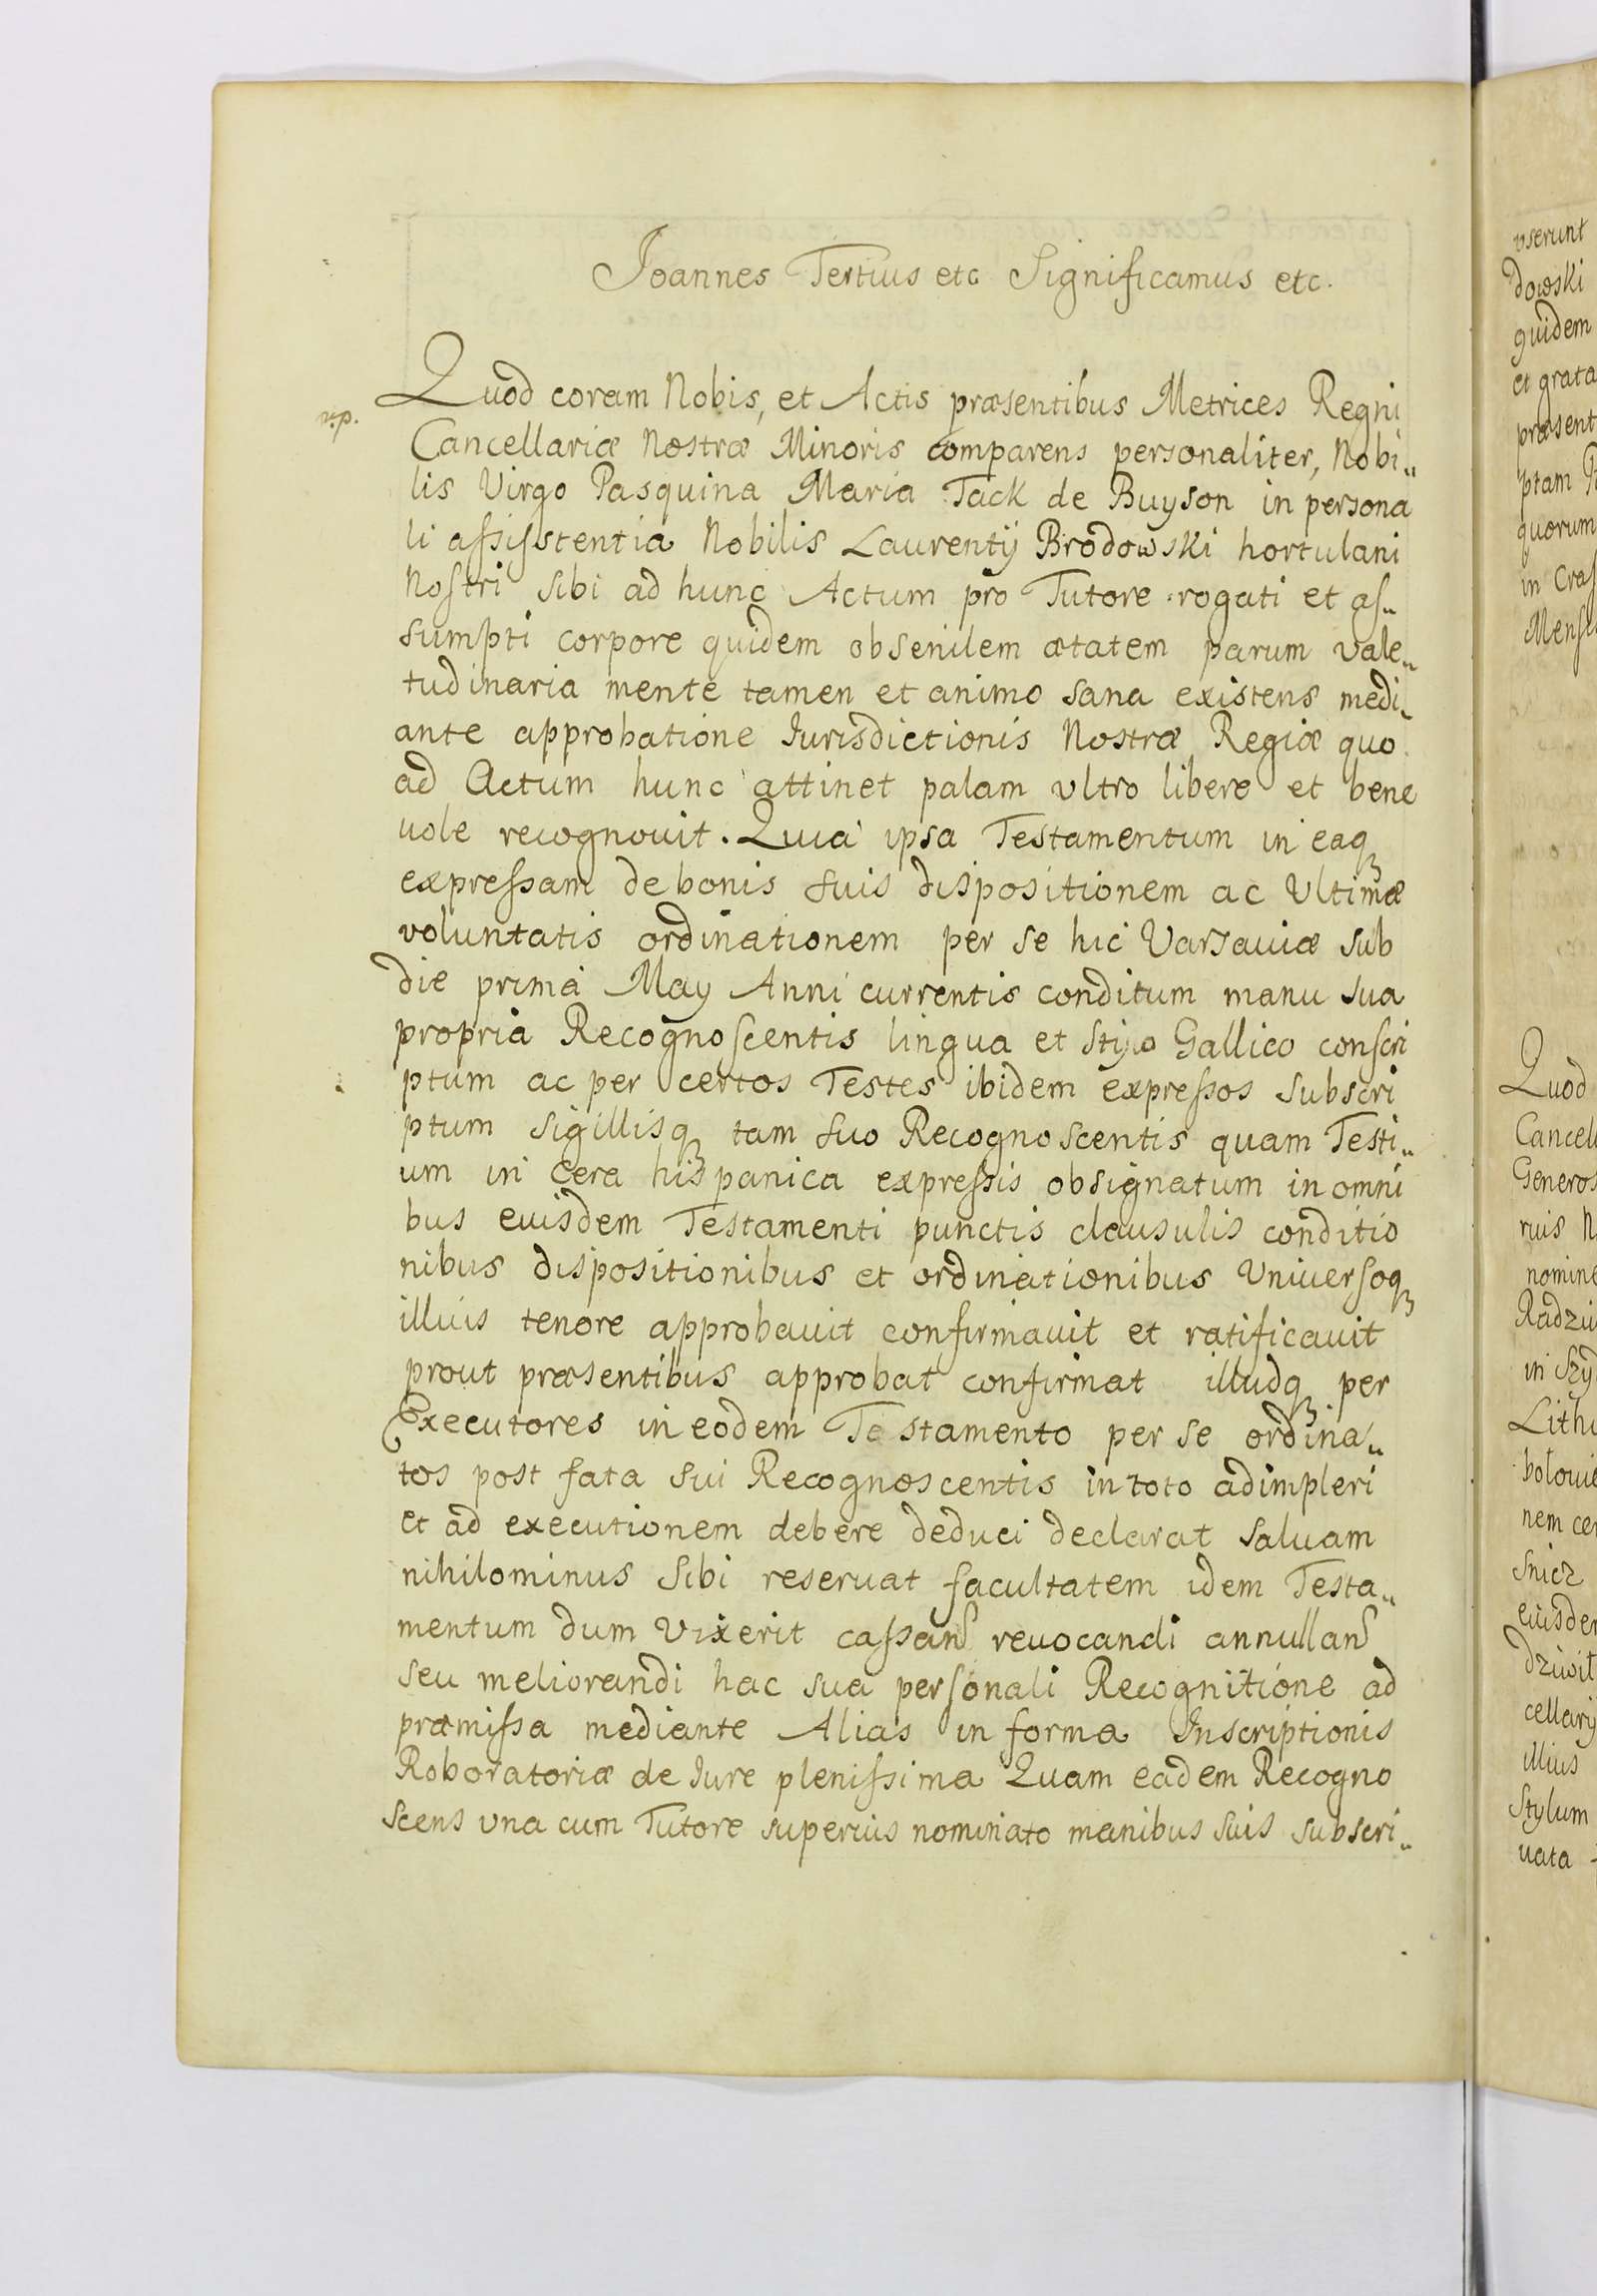 Joannes Tertius etc Significamus etc.
n.p.
Quod coram Nobis, et Actis præsentibus Metrices Regni
Cancellariæ Nostræ Minoris comparens personaliter, Nobi„
lis Virgo Pasquina Maria Tack de Buyson in persona
li aſsiſstentia Nobilis Laurentij Brodowski hortulani
Noſtri Sibi ad hunc Actum pro Tutore rogati et aſ„
sumpti corpore quidem obsenilem ætatem parum vale„
tudinaria mente tamen et animo sana existens medi„
ante approbatione Jurisdictionis Nostræ Regiæ quo
ad Actum hunc attinet palam vltro libere et bene
uole recognouit. Quia ipsa Testamentum in eaqꝫ
expreſsam de bonis suis dispositionem ac Vltimæ
voluntatis ordinationem per se hic Varsauiæ sub
die prima May Anni currentis conditum manu sua
propria Recognoſcentis lingua et Stijlo Gallico conſcri
ptum ac per certos Testes ibidem expreſsos Subscri
ptum Sigillisqꝫ tam suo Recognoscentis quam Testi„
um in Cera hispanica expreſsis obsignatum in omni
bus euisdem Testamenti punctis clausulis conditio
nibus dispositionibus et ordinationibus Vniuerſoqꝫ
illius tenore approbauit confirmauit et ratificauit
prout præsentibus approbat confirmat illudqꝫ per
Executores in eodem Testamento per se ordina„
tos post fata sui Recognoscentis in toto adimpleri
et ad executionem debere deduci declarat saluam
nihilominus Sibi reseruat facultatem idem Testa„
mentum dum Vixerit caſsand reuocandi annulland
seu meliorandi hac sua perſonali Recognitione ad
præmiſsa mediante Alias in forma Inscriptionis
Roboratoriæ de Jure pleniſsima Quam eadem Recogno
scens vna cum Tutore superius nominato manibus suis subscri„
vserunt
dowski
quidem
et grata
præsent
ptam
quorum
in Craſ
Menſi
Quod
Cancell
Generos
ruis N
nomine
Radziw
in Szyd
Lithu
botowie
nem cer
Snicz
euisdem
dziwit
cellarij
illius
Stylum
uata